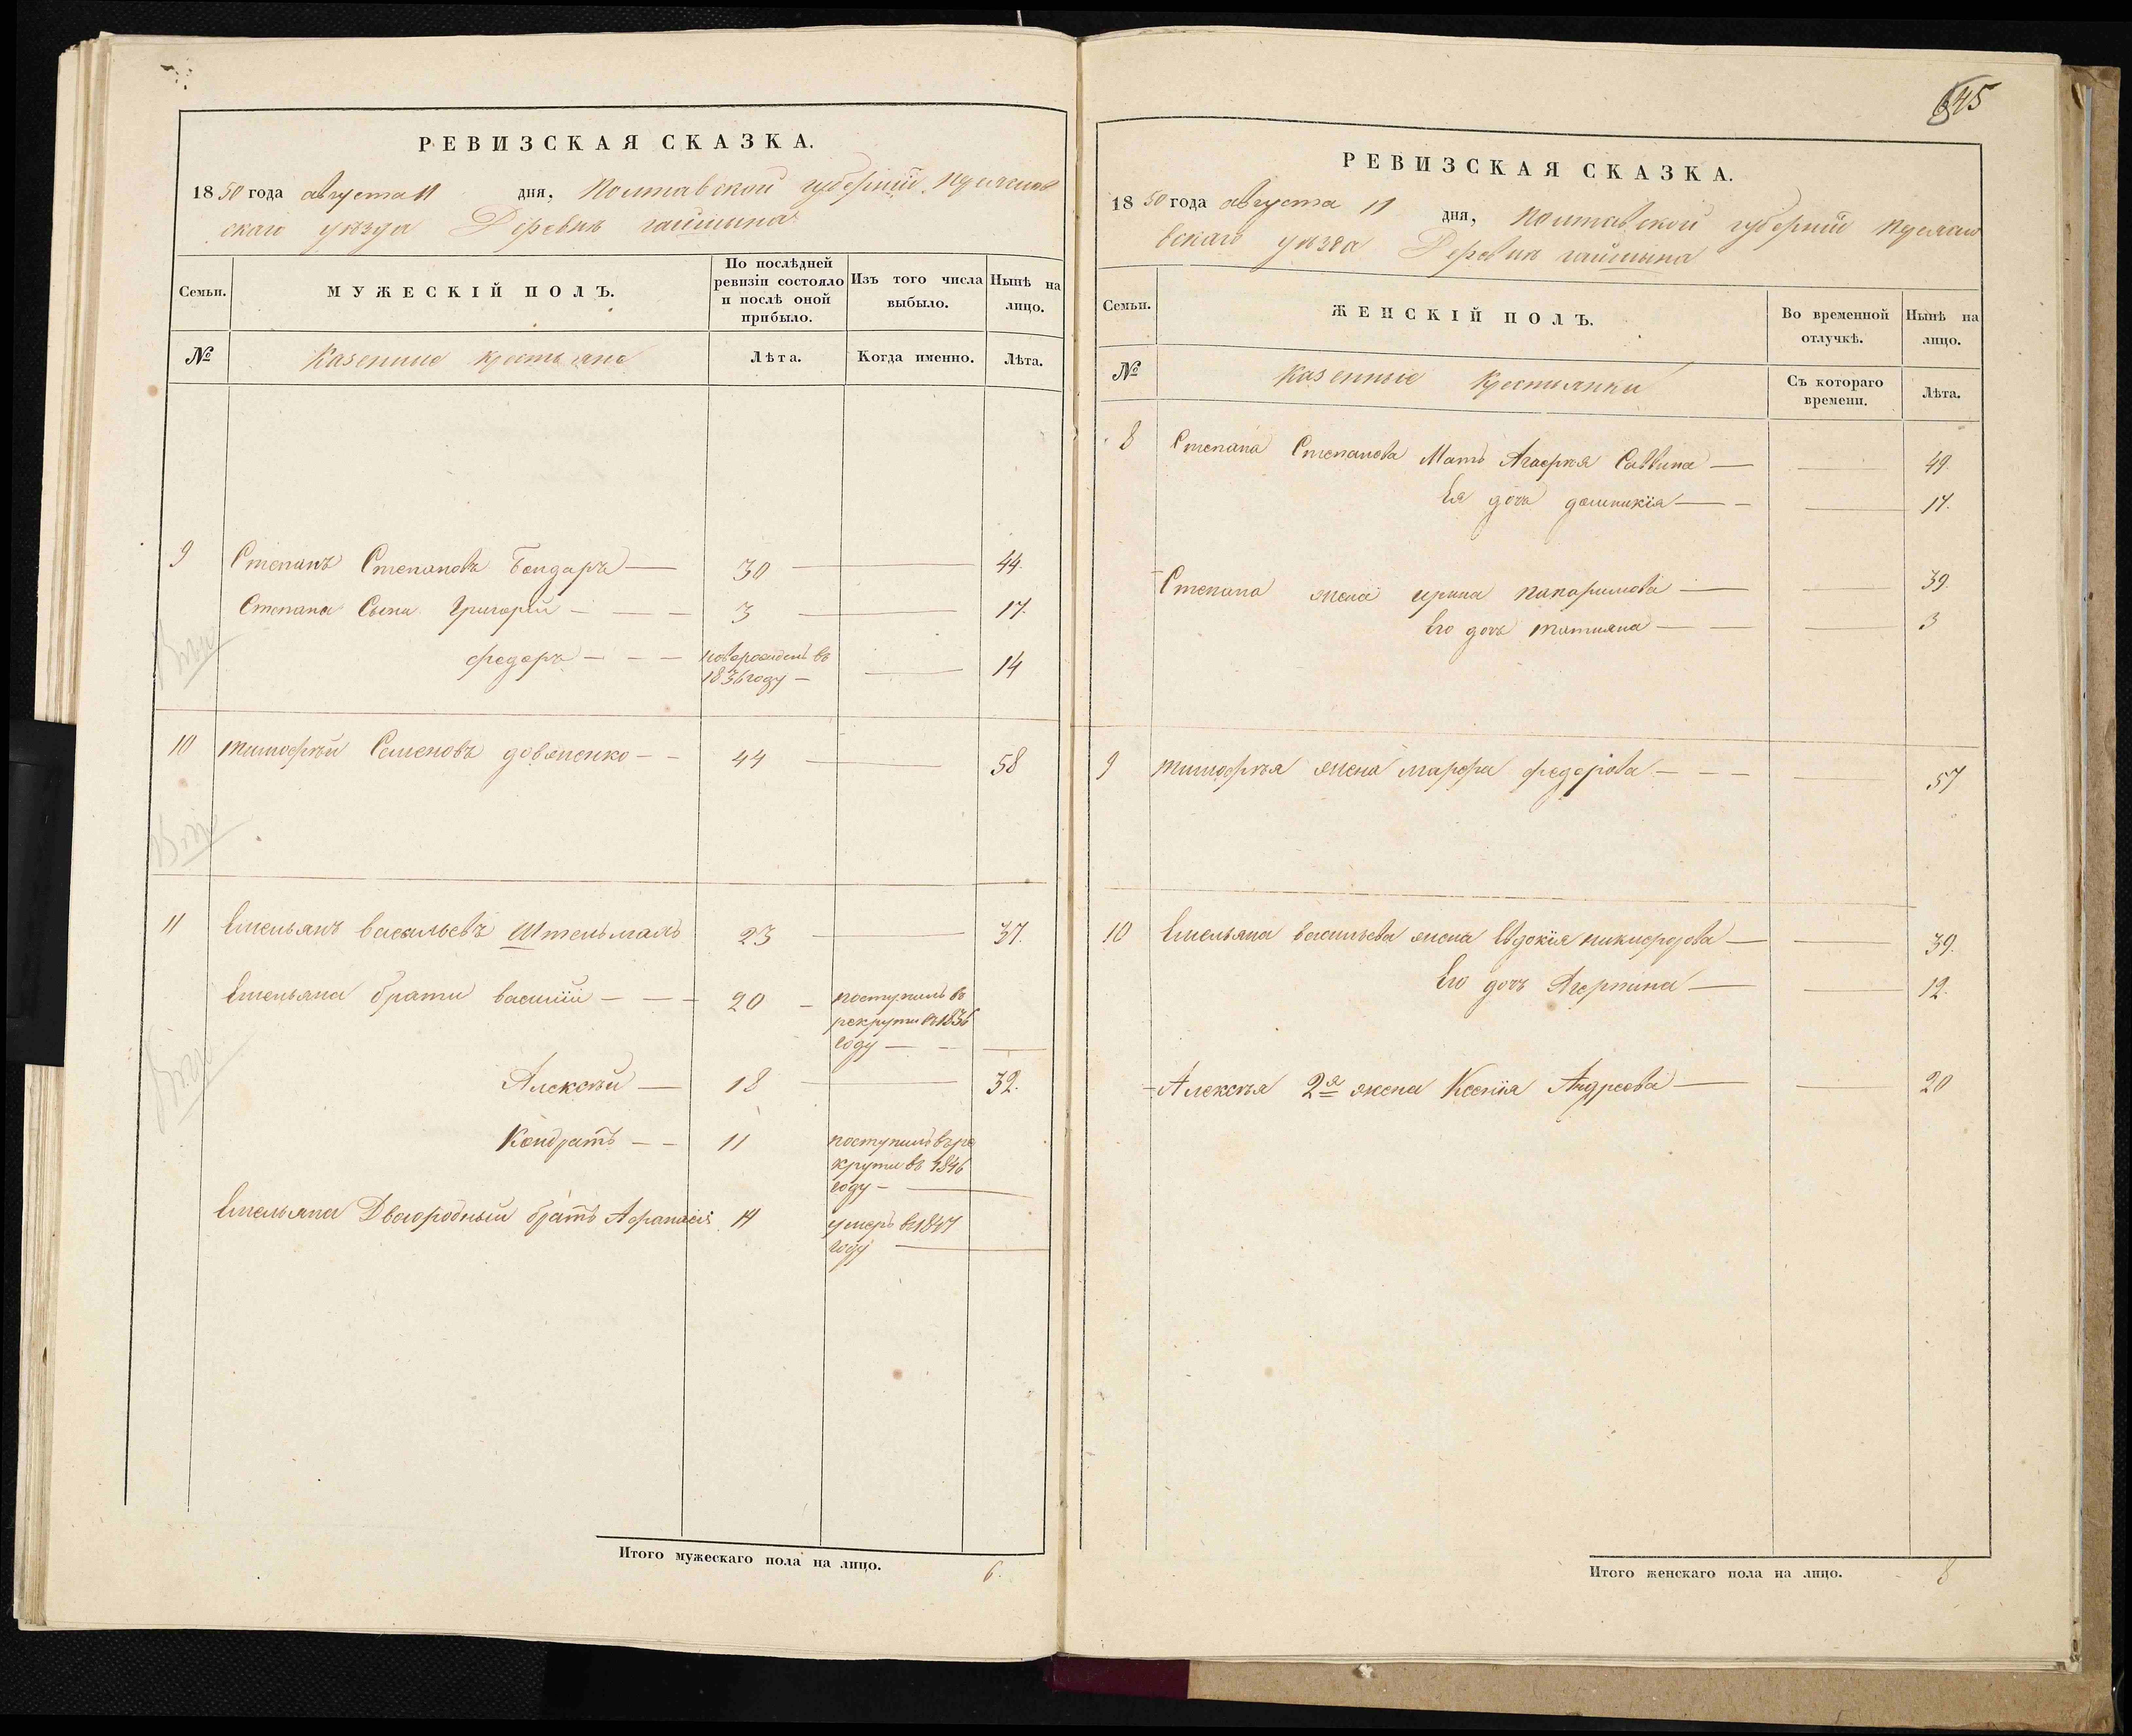 РЕВИЗСКАЯ СКАЗКА.
1850 года августа 11 дня, Полтавской губерніи,
скаго уѣзда Деревнѣ
Семьи. МУЖЕСКІЙ ПОЛЪ. По послѣдней ревизіи состояло и послѣ оной прибыло. Изъ того числа выбыло. Нынѣ на лицо.
№ Казенные крестьяне Лѣта. Когда именно. Лѣта.
9 Степанъ Степановъ Бондаръ — 30 — 44.
Степана Сыны Григорій — 3 — 17.
федоръ — новорожденъ въ 1836 году — 14
10 тимофѣй Семеновъ довженко — 44 — 58
11 Емельянъ васильевъ Штельмахъ 23 — 37.
Емельяна братья василій — 20 — поступилъ въ
рекруты въ 1836
году —
Алексѣй — 18 — 32.
Кондратъ — 11 поступилъ въ ре
круты въ 1846
году —
Емельяна Двоюродный братъ Афанасій 14 умеръ въ 1847
году —
Итого мужескаго пола на лицо. 6.
645
РЕВИЗСКАЯ СКАЗКА.
1850 года августа 11 дня, Полтавской губерніи
вскаго уѣзда Деревнѣ
Семьи. ЖЕНСКІЙ ПОЛЪ. Во временной отлучкѣ. Нынѣ на лицо.
№ Казенные Крестьянки Съ котораго времени. Лѣта.
8 Степана Степанова Мать Агафія Саввина — 49.
Ея дочь домникія — 17.
Степана жена ирина — 39
Его дочь татияна — 3
9 тимофѣя жена марфа федорова — 57
10 Емельяна васильева жена Евдокія никифорова — 39.
Его дочь — 12.
Алексѣя 2я жена Ксенія Андреева — 20
Итого женскаго пола на лицо. 8